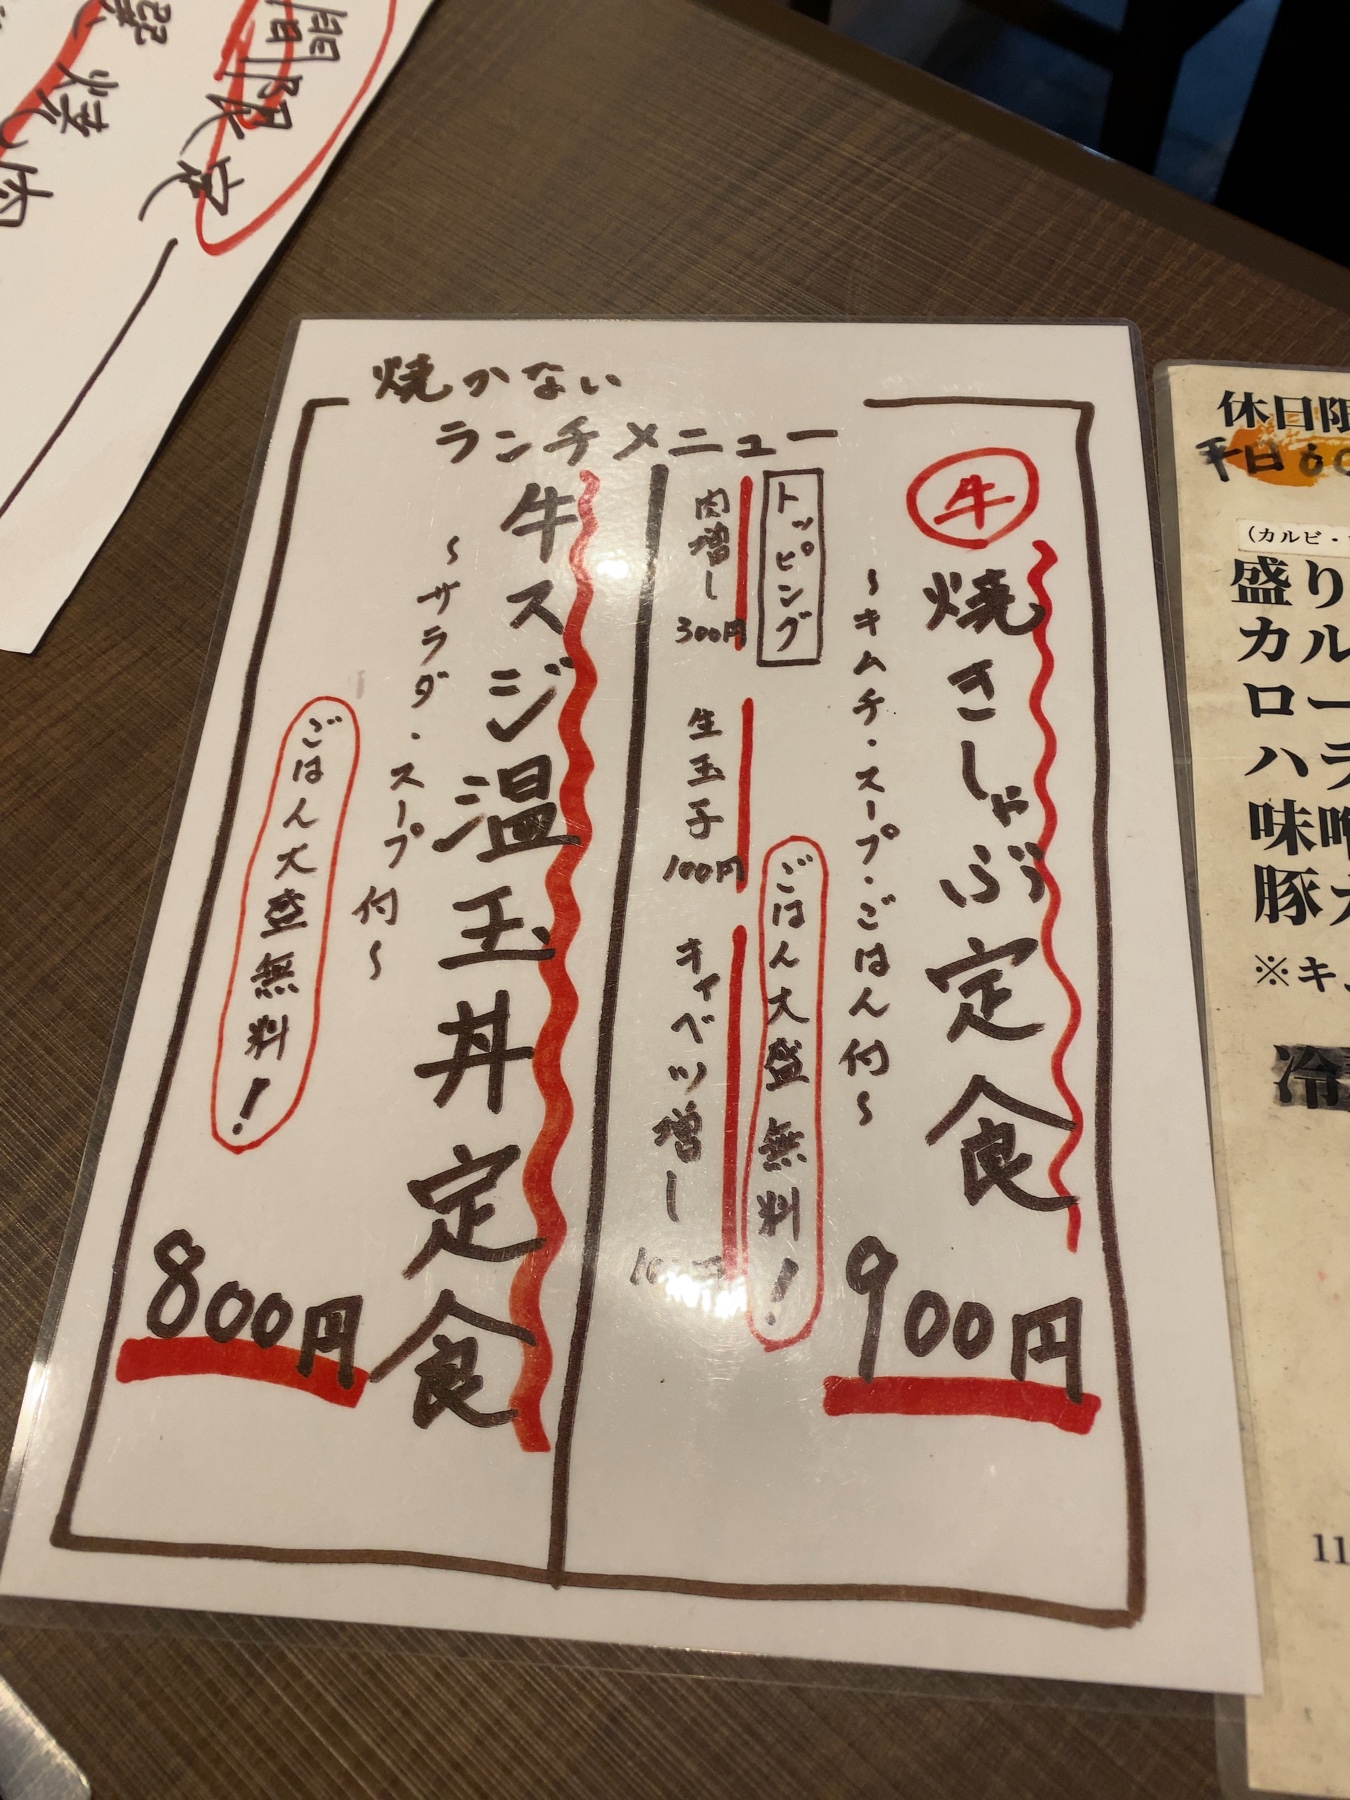 間限定
焼肉
焼かない
ランチメニュー
牛
焼きしゃぶ定食
~キムチ・スープ・ごはん付~
ごはん大盛無料!
900円
トッピング
肉増し 300円
生玉子 100円
キャベツ増し
牛スジ温玉丼定食
~サラダ・スープ付~
ごはん大盛無料!
800円
休日限
平日
(カルビ・
盛り
カル
ロー
ハラ
味噌
豚
※キ
冷
11